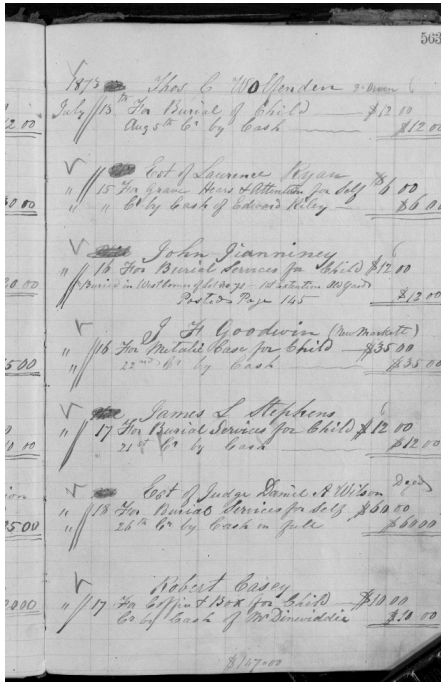 563
1873 Thos C Wolfenden
July 13th For Burial of Child $12.00
Aug 5th Cr by Cash $12.00
Est of Lawrence Ryan
" 15 For Grave Hears & Attention for Self $6.00
" " Cr by Cash of Edward Riley $6.00
John Gianniney
" 16 For Burial Services for Child $12.00
Buried in West 1st Extention
Posted Page 145 $12.00
J H Goodwin (New Markett)
" 16 For Metalic Case for Child $35.00
" 22nd Cr by Cash $35.00
James L Stephens
" 17 For Burial Services for Child $12.00
" 21st Cr by Cash $12.00
Est of Judge Daniel A Wilson Decd
" 18 For Burial Services for Self $60.00
" 26th Cr by Cash in full $60.00
Robert Casey
" 17 For Coffin & Box for Child $10.00
Cr by Cash of Mr Dinwiddie $10.00
$147.00